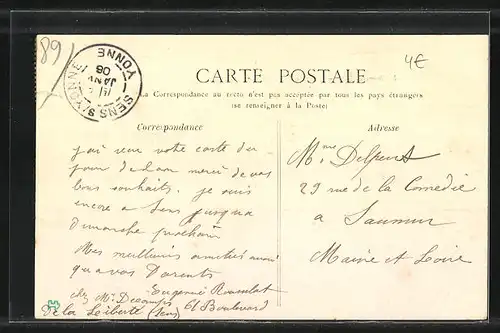 89
4€
SENS S/ YONNE
YONNE
JANV
08
CARTE POSTALE
La Correspondance au recto n'est pas acceptée par tous les pays étrangers
(se renseigner à la Poste)
Correspondance
Adresse
j'ai reçu votre carte du
jour de l'an merci de vos
bons souhaits, je suis
encore a Sens jusqua
dimanche prochain
Mes meilleurs amitiés ainsi
qua vos Parents
Eugenie
chez Mr Decamps 61 Boulevard
de la Liberté (Sens)
Mme Delpeut
29 rue de la Comédie
a Saumur
Maine et Loire